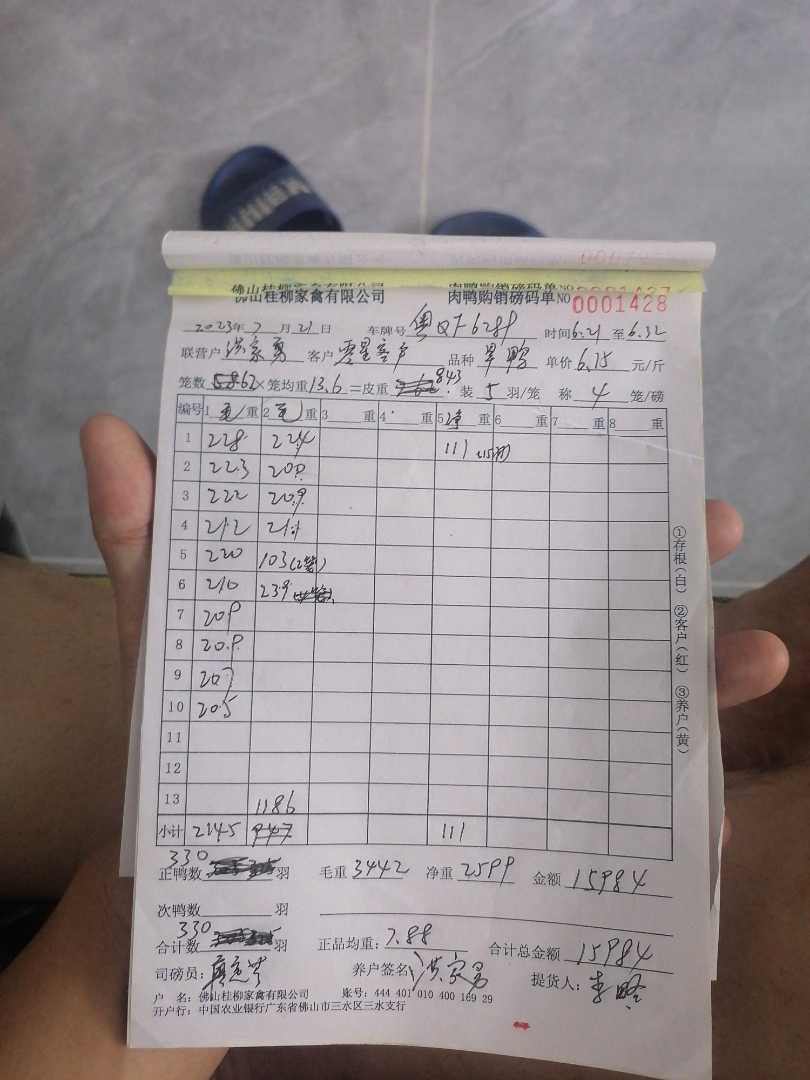 佛山桂柳家禽有限公司 肉鸭购销磅码单NO 0001428
2023年7月21日 车牌号 粤QF6289 时间6.21至6.32
联营户 洪家勇 客户 零星客户 品种 单价6.15元/斤
笼数 62×笼均重13.6=皮重 843 装5羽/笼 称4笼/磅
编号 1毛重 2毛重 3重 4重 5净重 6重 7重 8重
1 228 224 111
2 223 208
3 222 209
4 212 211
5 220 103(2笼)
6 210 239
7 209
8 208
9 207
10 205
11
12
13 1186
小计 2145 947 111
正鸭数 330 羽 毛重3442 净重2599 金额15984
次鸭数 羽
合计数 330 羽 正品均重:7.88 合计总金额15984
司磅员: 养户签名: 洪家勇 提货人:
户 名:佛山桂柳家禽有限公司 账号:444 401 010 400 169 29
开户行:中国农业银行广东省佛山市三水区三水支行
①存根(白) ②客户(红) ③养户(黄)